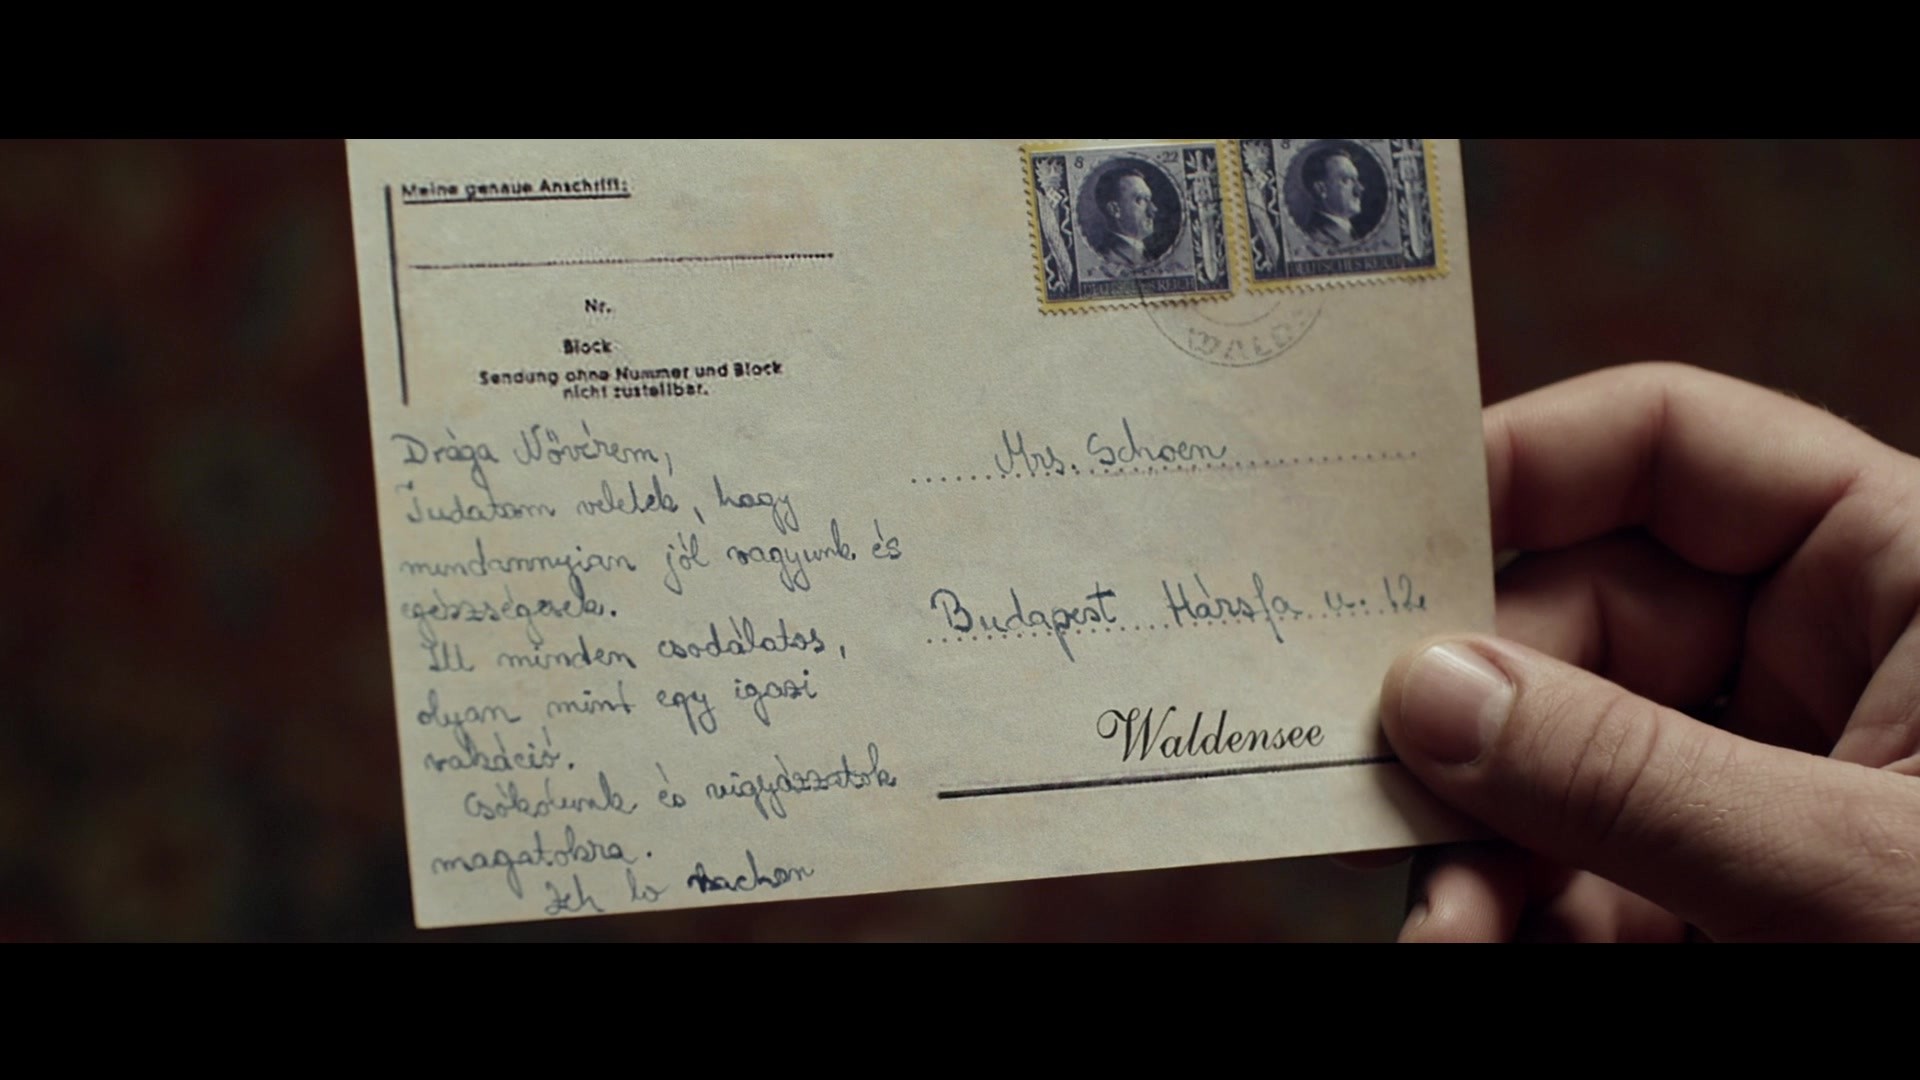 Meine genaue Anschrift:
Nr.
Block
Sendung ohne Nummer und Block
nicht zustellbar.
8 +22
8
DEUTSCHES REICH
DEUTSCHES REICH
WALD
Drága Nővérem,
Tudatom veletek, hogy
mindannyian jól vagyunk és
egészségesek.
Itt minden csodálatos,
olyan mint egy igazi
vakáció.
Csókolunk és vigyázzatok
magatokra.
Mrs. Schoen
Budapest Hársfa u. 12.
Waldensee